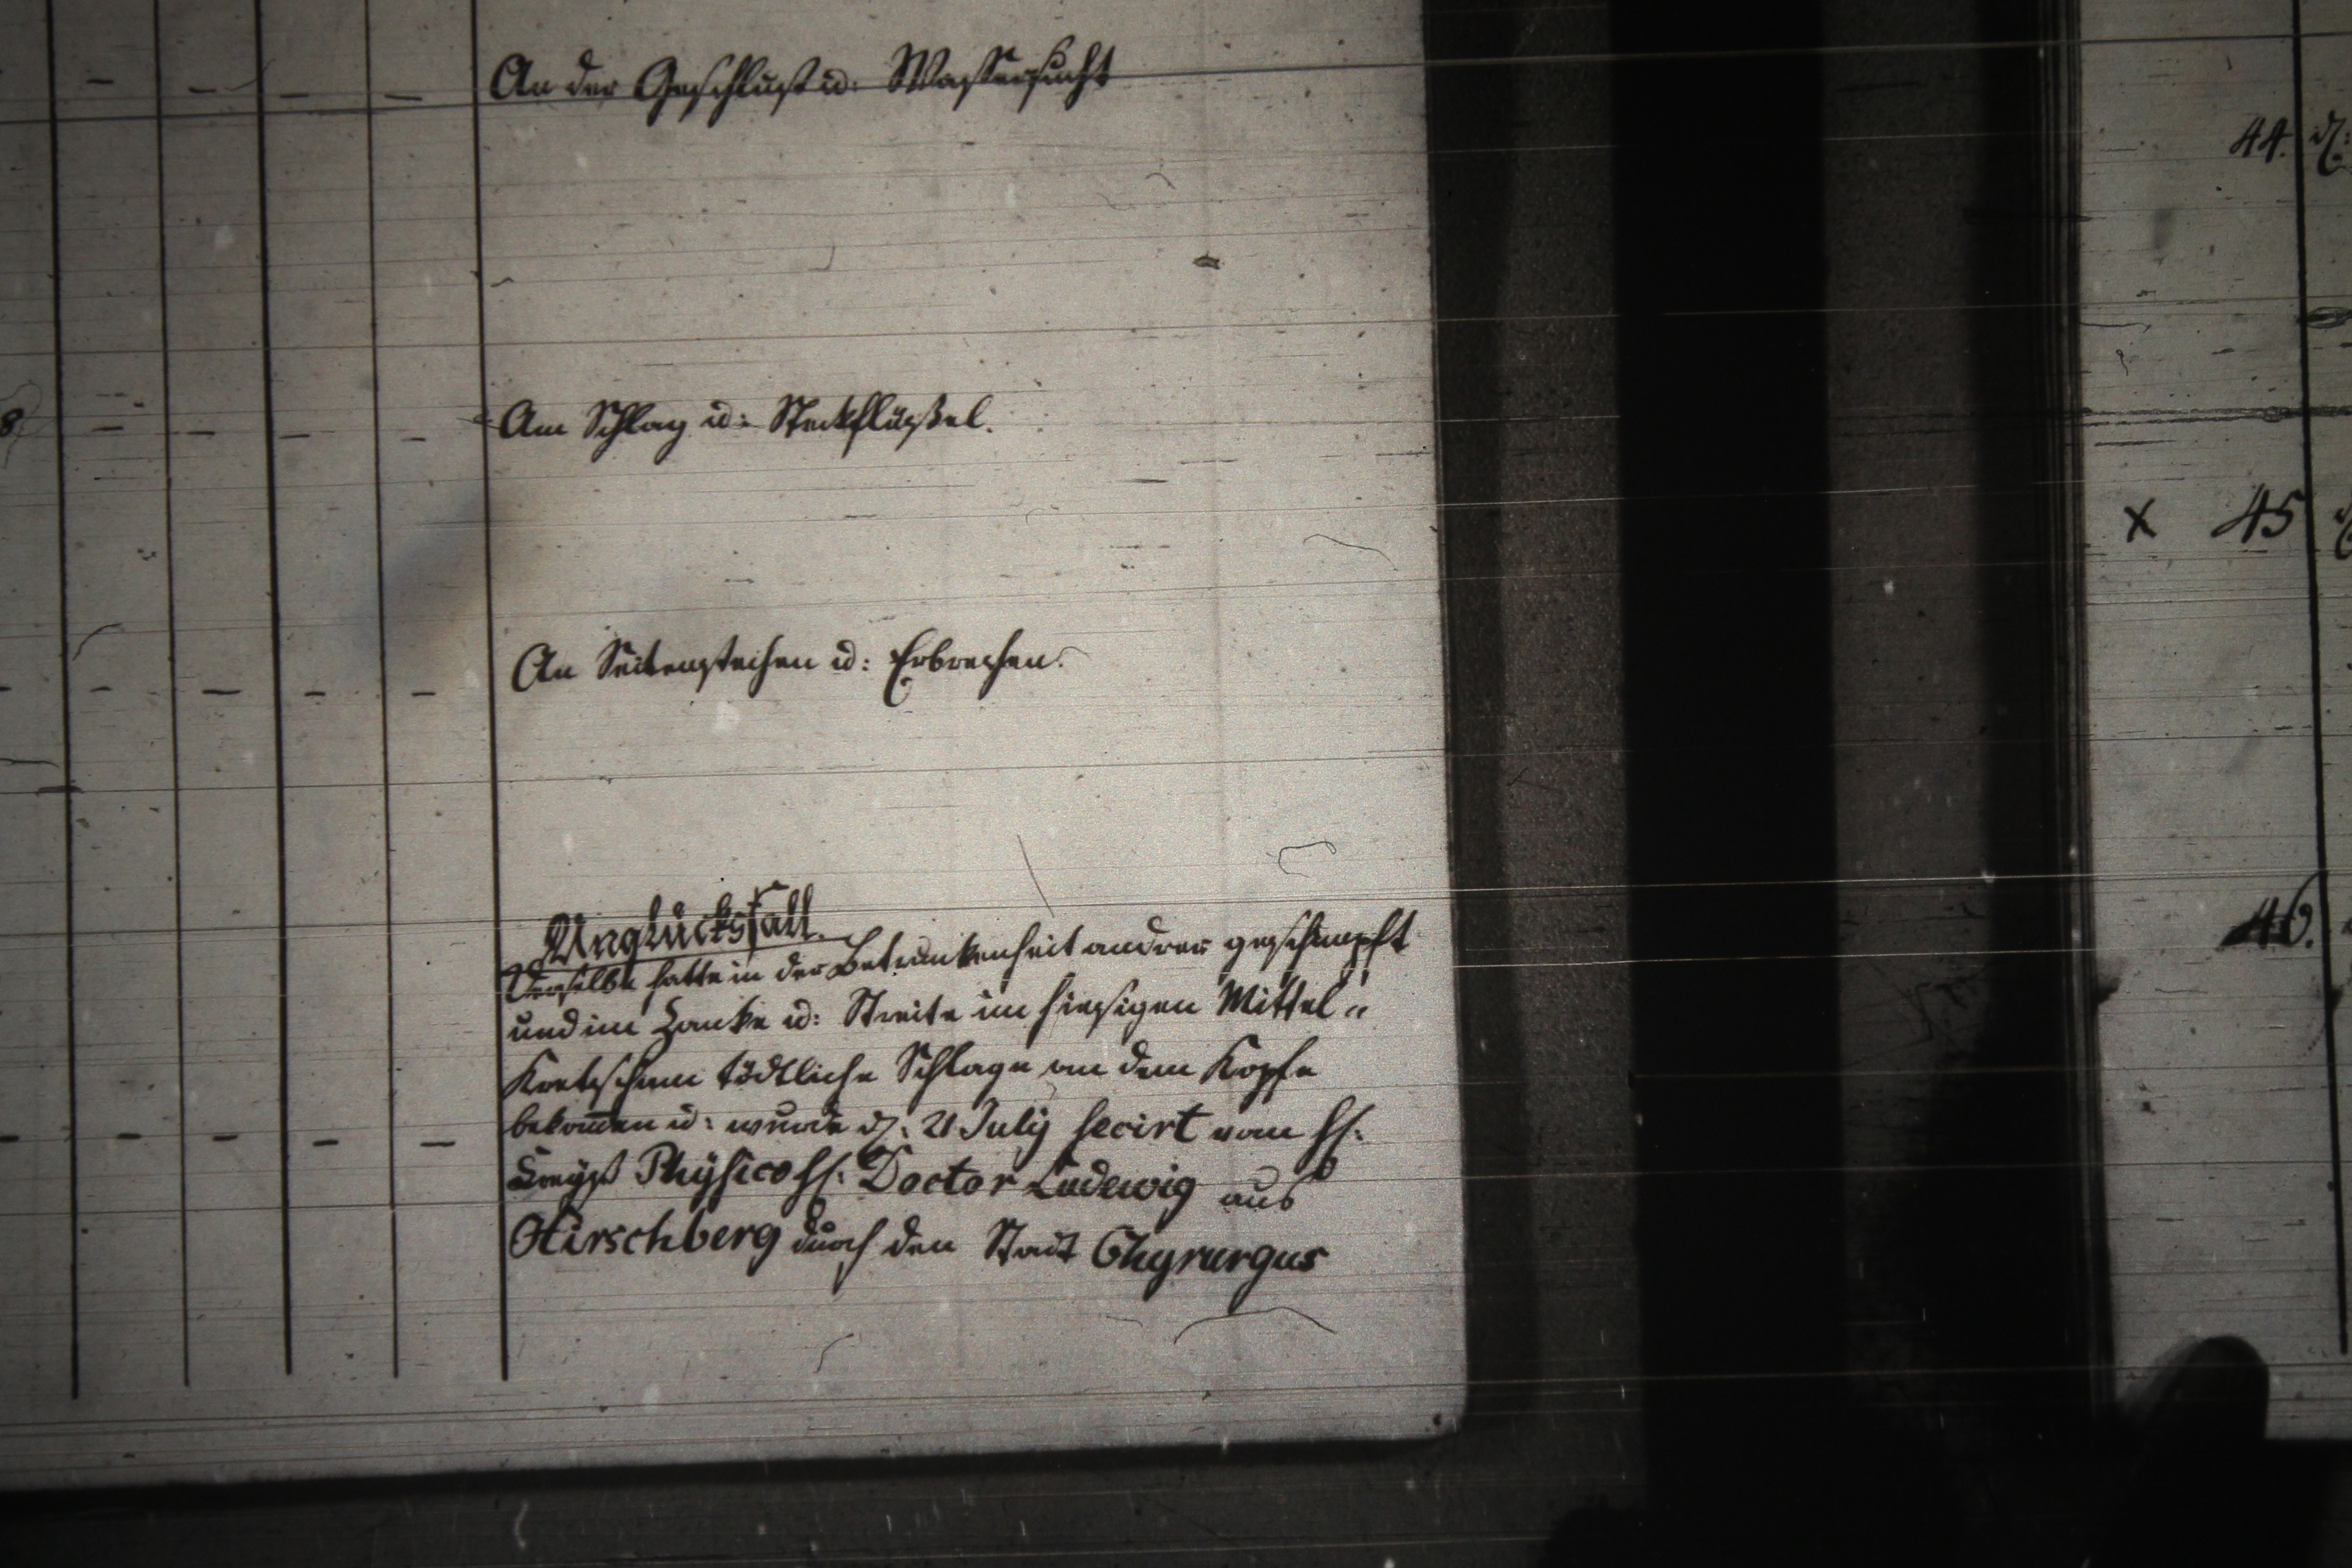 An der Geschlust u: Wassersucht
44. d.
8 Am Schlag u: Steckflüßel.
x 45
An Seitenstechen u: Erbrechen.
Unglücksfall.
46.
Derselbe hatte in der Betrunkenheit andrer geschimpft
und im Zanke u: Streite im hiesigen Mittel"
Kretscham tödtliche Schlage an dem Kopfe
bekom̅en u: wurde d: 21 July secirt vom H:
Kreyß Physico H: Doctor Ludewig aus
Hirschberg durch den Stadt Chyrurgus